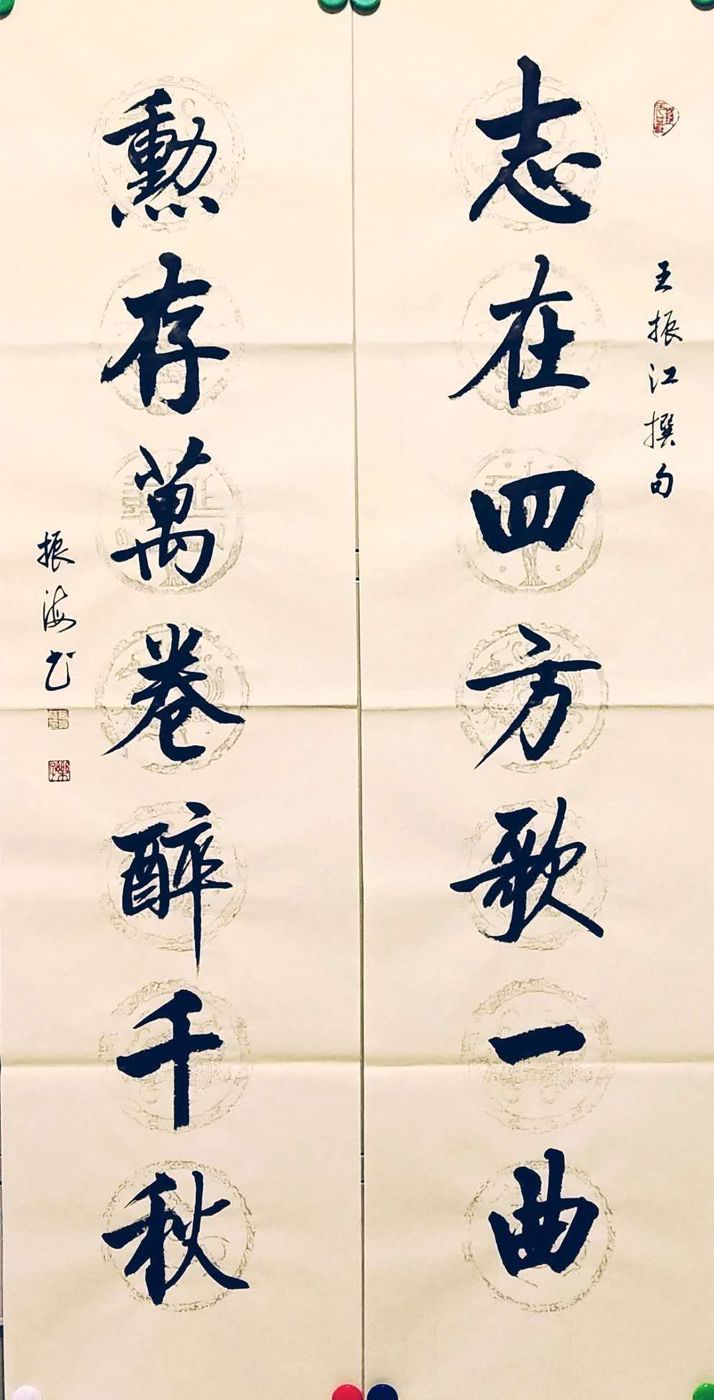 王振江撰句
志在四方歌一曲
勳存萬卷醉千秋
振海书